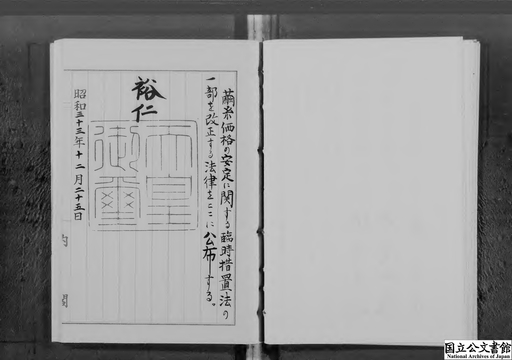 繭糸価格の安定に関する臨時措置法の
一部を改正する法律をここに公布する。
裕仁
天皇
御璽
昭和三十三年十二月二十五日
国立公文書館
National Archives of Japan